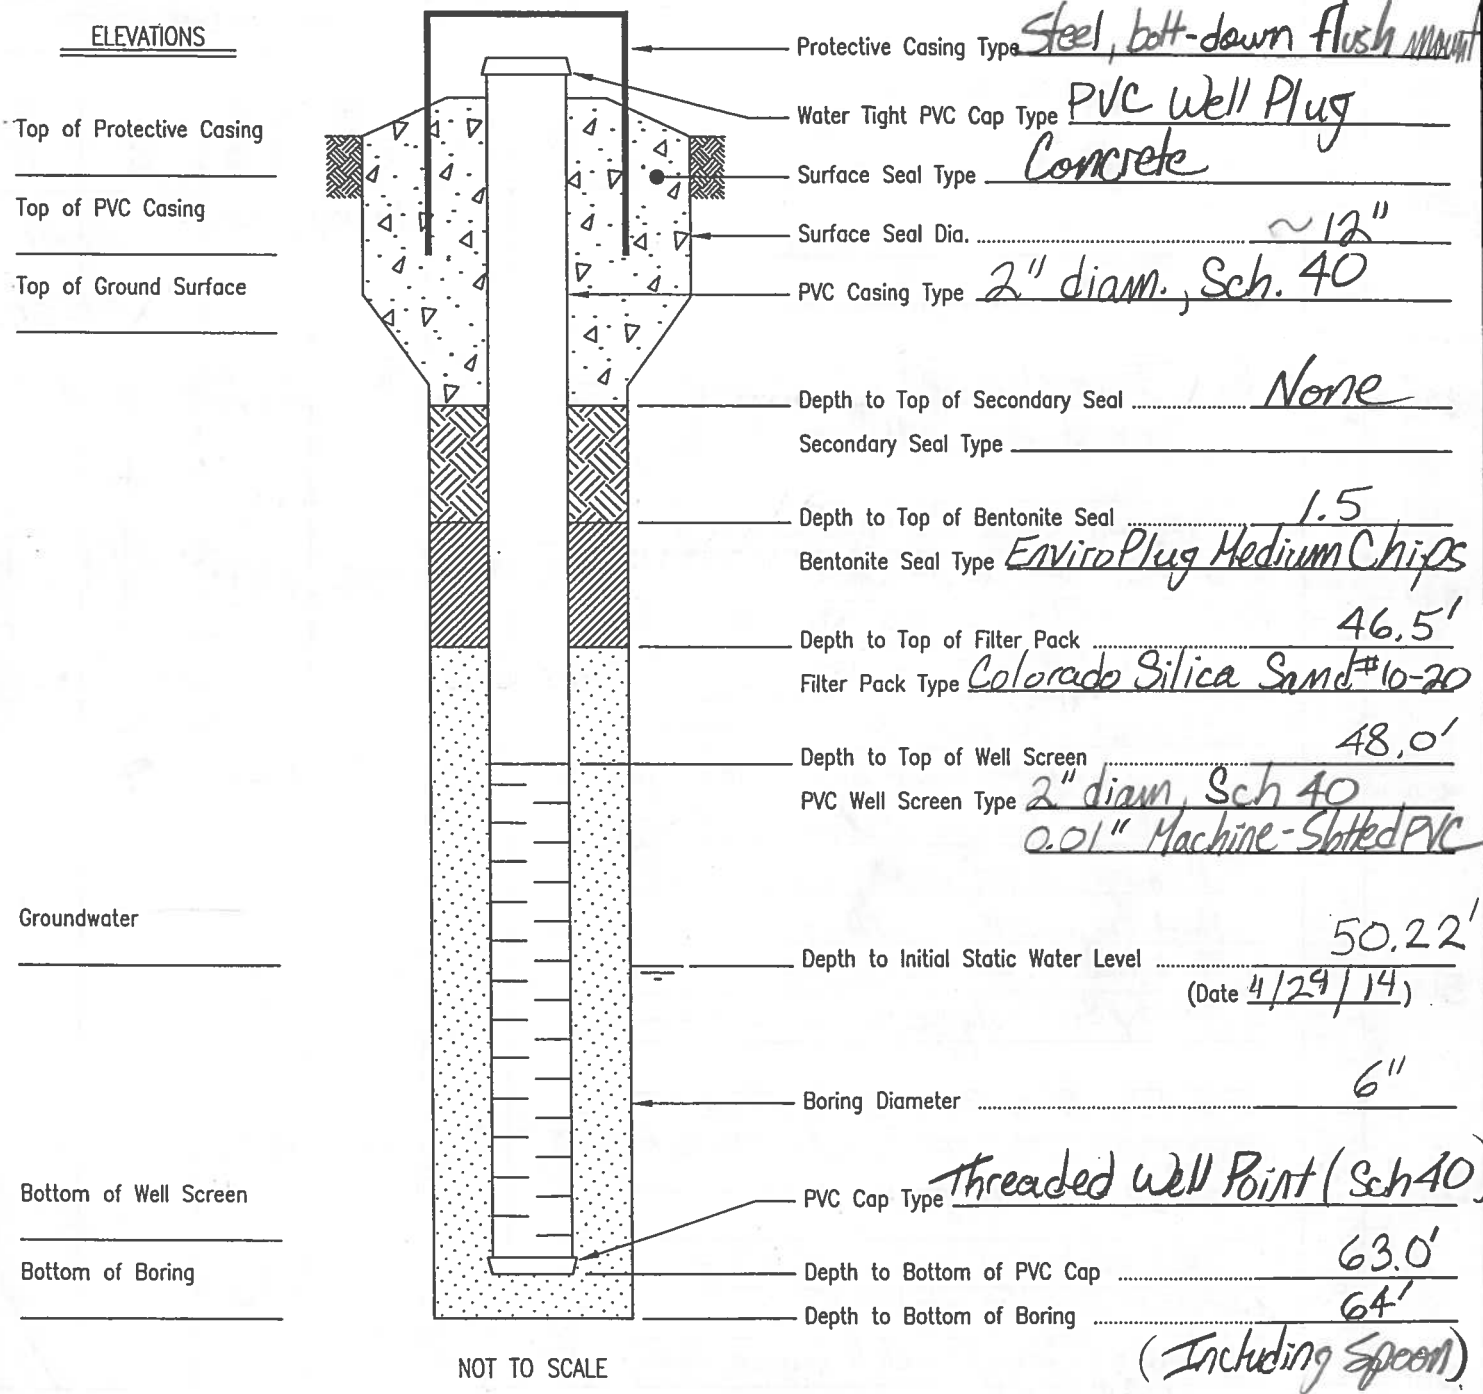 ELEVATIONS
Top of Protective Casing
Top of PVC Casing
Top of Ground Surface
Groundwater
Bottom of Well Screen
Bottom of Boring
Protective Casing Type Steel, bolt-down flush mount
Water Tight PVC Cap Type PVC Well Plug
Surface Seal Type Concrete
Surface Seal Dia. ~12"
PVC Casing Type 2" diam., Sch. 40
Depth to Top of Secondary Seal None
Secondary Seal Type
Depth to Top of Bentonite Seal 1.5
Bentonite Seal Type EnviroPlug Medium Chips
Depth to Top of Filter Pack 46.5'
Filter Pack Type Colorado Silica Sand #10-20
Depth to Top of Well Screen 48.0'
PVC Well Screen Type 2" diam, Sch 40
0.01" Machine-Slotted PVC
Depth to Initial Static Water Level 50.22'
(Date 4/29/14)
Boring Diameter 6"
PVC Cap Type Threaded Well Point (Sch 40)
Depth to Bottom of PVC Cap 63.0'
Depth to Bottom of Boring 64'
(Including Spoon)
NOT TO SCALE